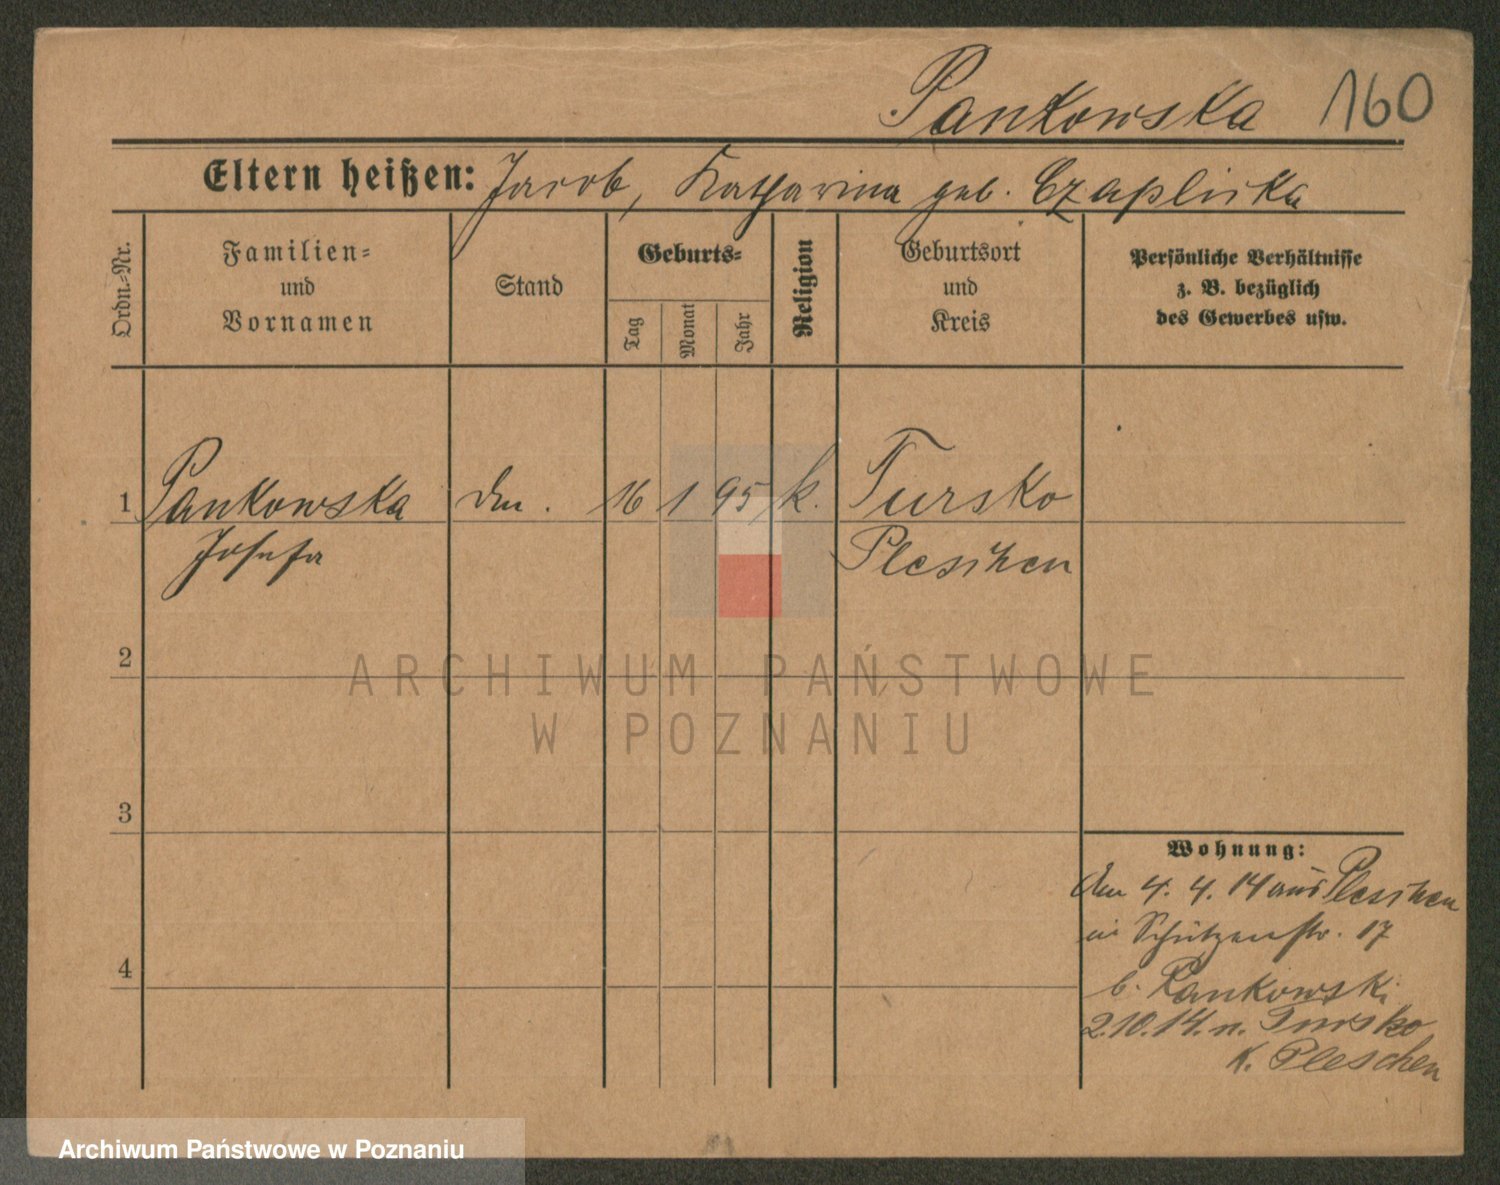 Pankowska 160
Eltern heißen: Jacob, Katharina geb. Czaplicka
Ordn.-Nr.
Familien-
und
Vornamen
Stand
Geburts-
Tag
Monat
Jahr
Religion
Geburtsort
und
Kreis
Persönliche Verhältnisse
z. B. bezüglich
des Gewerbes usw.
1 Pankowska 16 1 95 k. Tursko
Josefa Pleschen
2
3
4
Wohnung:
Am 4. 4. 14 aus Pleschen
in Schützenstr. 17
b. Pankowski
2.10.14. n. Tursko
K. Pleschen
ARCHIWUM PAŃSTWOWE
W POZNANIU
Archiwum Państwowe w Poznaniu